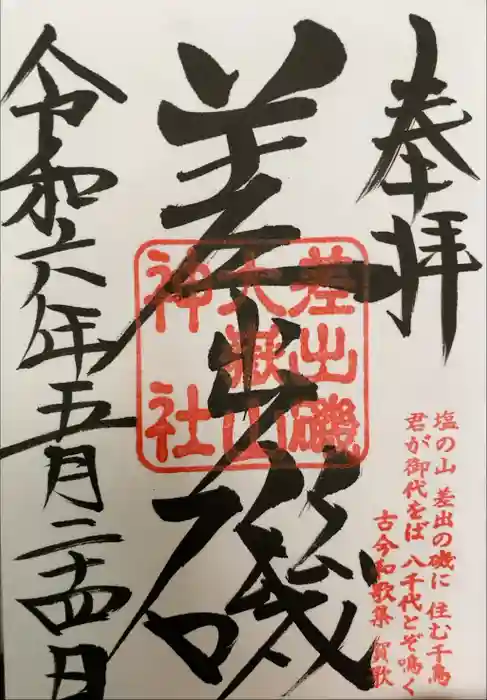 奉拝
差出磯
差出磯
大嶽山
神社
塩の山 差出の磯に 住む千鳥
君が御代をば 八千代とぞ鳴く
古今和歌集 賀歌
令和六年五月二十四日